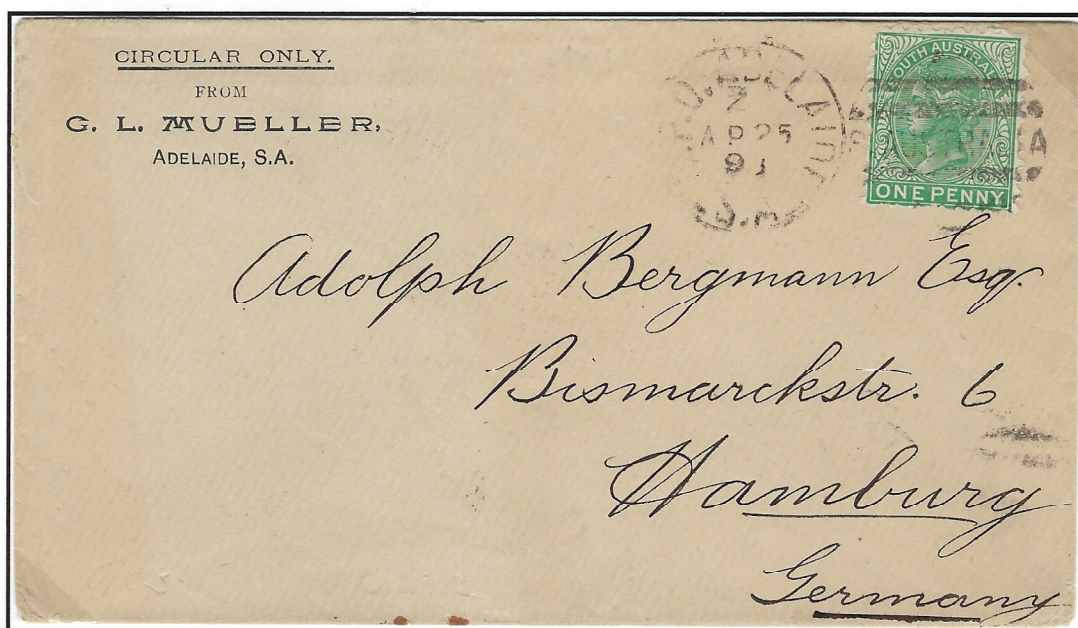 CIRCULAR ONLY.
FROM
G. L. MUELLER,
ADELAIDE, S.A.
G.P.O. ADELAIDE
2
AP 25
9
S.A.
SOUTH AUSTRALIA
ONE PENNY
Adolph Bergmann Esq.
Bismarckstr. 6
Hamburg
Germany